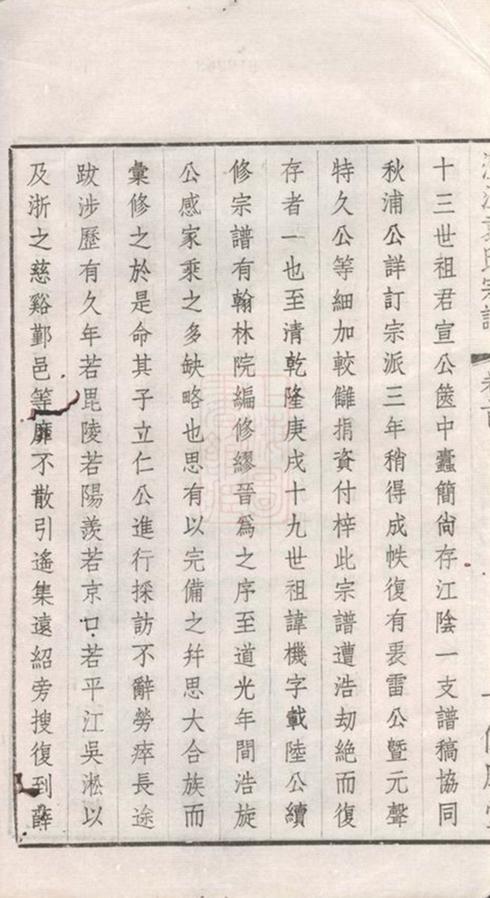 十三世祖君宣公篋中蠹簡尙存江陰一支譜稿協同
秋浦公詳訂宗派三年稍得成帙復有裴雷公暨元聲
特久公等細加較讎捐資付梓此宗譜遭浩劫絕而復
存者一也至清乾隆庚戌十九世祖諱機字載陸公續
修宗譜有翰林院編修繆晉爲之序至道光年間浩旋
公感家乘之多缺略也思有以完備之幷思大合族而
彙修之於是命其子立仁公進行採訪不辭勞瘁長途
跋涉歷有久年若毘陵若陽羨若京口若平江吳淞以
及浙之慈谿鄞邑等靡不散引遙集遠紹旁搜復到薛